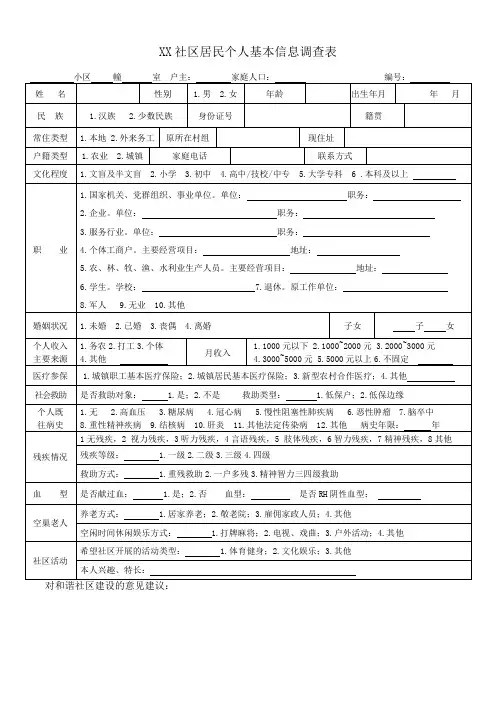 XX社区居民个人基本信息调查表
小区 幢 室 户主: 家庭人口: 编号:
姓 名 性别 1.男 2.女 年龄 出生年月 年 月
民 族 1.汉族 2.少数民族 身份证号 籍贯
常住类型 1.本地 2.外来务工 原所在村组 现住址
户籍类型 1.农业 2.城镇 家庭电话 联系方式
文化程度 1.文盲及半文盲 2.小学 3.初中 4.高中/技校/中专 5.大学专科 6 .本科及以上
1.国家机关、党群组织、事业单位。单位: 职务:
2.企业。单位: 职务:
3.服务行业。单位: 职务:
职 业 4.个体工商户。主要经营项目: 地址:
5.农、林、牧、渔、水利业生产人员。主要经营项目: 地址:
6.学生。学校: 7.退休。原工作单位:
8.军人 9.无业 10.其他
婚姻状况 1.未婚 2.已婚 3.丧偶 4.离婚 子女 子 女
个人收入 1.务农2.打工3.个体 月收入 1.1000元以下 2.1000~2000元 3.2000~3000元
主要来源 4.其他 4.3000~5000元 5.5000元以上6.不固定
医疗参保 1.城镇职工基本医疗保险;2.城镇居民基本医疗保险;3.新型农村合作医疗;4.其他
社会救助 是否救助对象: 1.是;2.不是 救助类型: 1.低保户;2.低保边缘
个人既 1.无 2.高血压 3.糖尿病 4.冠心病 5.慢性阻塞性肺疾病 6.恶性肿瘤 7.脑卒中
往病史 8.重性精神疾病 9.结核病 10.肝炎 11.其他法定传染病 12.其他 病史年限: 年
1无残疾,2 视力残疾,3听力残疾,4言语残疾,5 肢体残疾,6智力残疾,7精神残疾,8其他
残疾情况 残疾等级: 1.一级2.二级3.三级4.四级
救助方式: 1.重残救助2.一户多残3.精神智力三四级救助
血 型 是否献过血: 1.是;2.否 血型: 是否RH阴性血型:
空巢老人 养老方式: 1.居家养老;2.敬老院;3.雇佣家政人员;4.其他
空闲时间休闲娱乐方式: 1.打牌麻将;2.电视、戏曲;3.户外活动;4.其他
社区活动 希望社区开展的活动类型: 1.体育健身;2.文化娱乐;3.其他
本人兴趣、特长:
对和谐社区建设的意见建议: